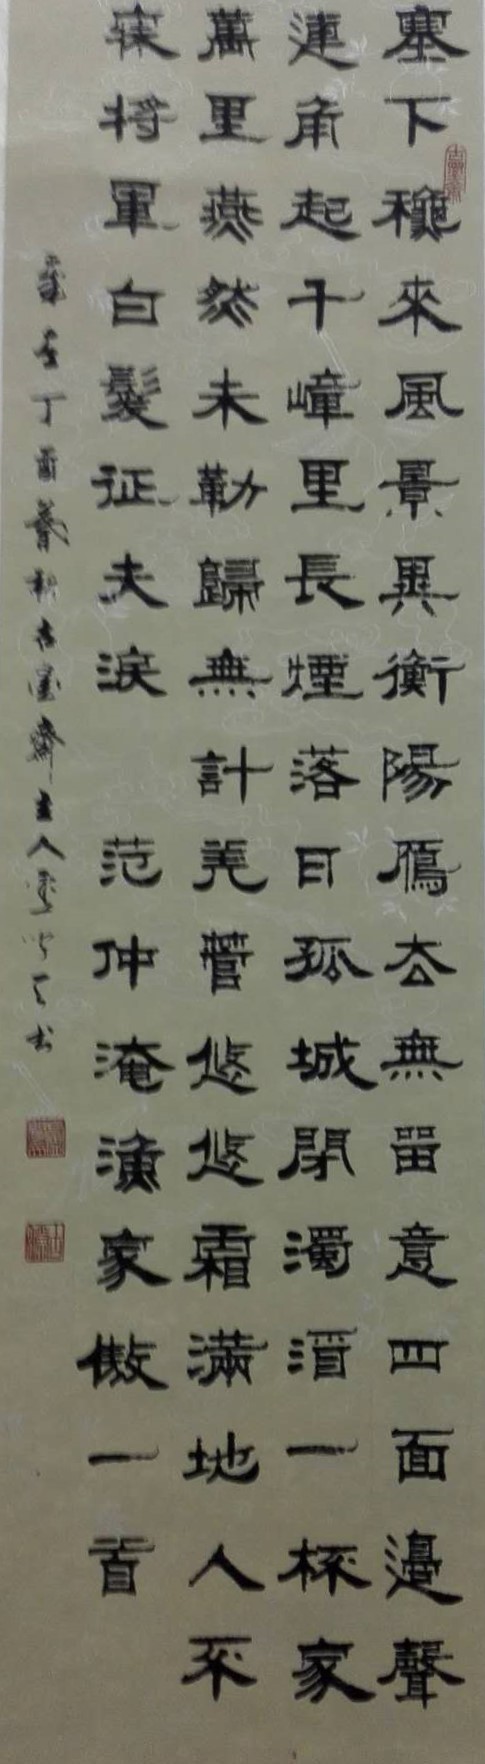 塞下穐來風景異衡陽鴈去無畱意四面邊聲
連角起千嶂里長煙落日孤城閉濁酒一杯家
萬里燕然未勒歸無計羌管悠悠霜滿地人不
寐將軍白髮征夫淚 范仲淹漁家傲一首
歲在丁酉暮秋古墨齋主人書